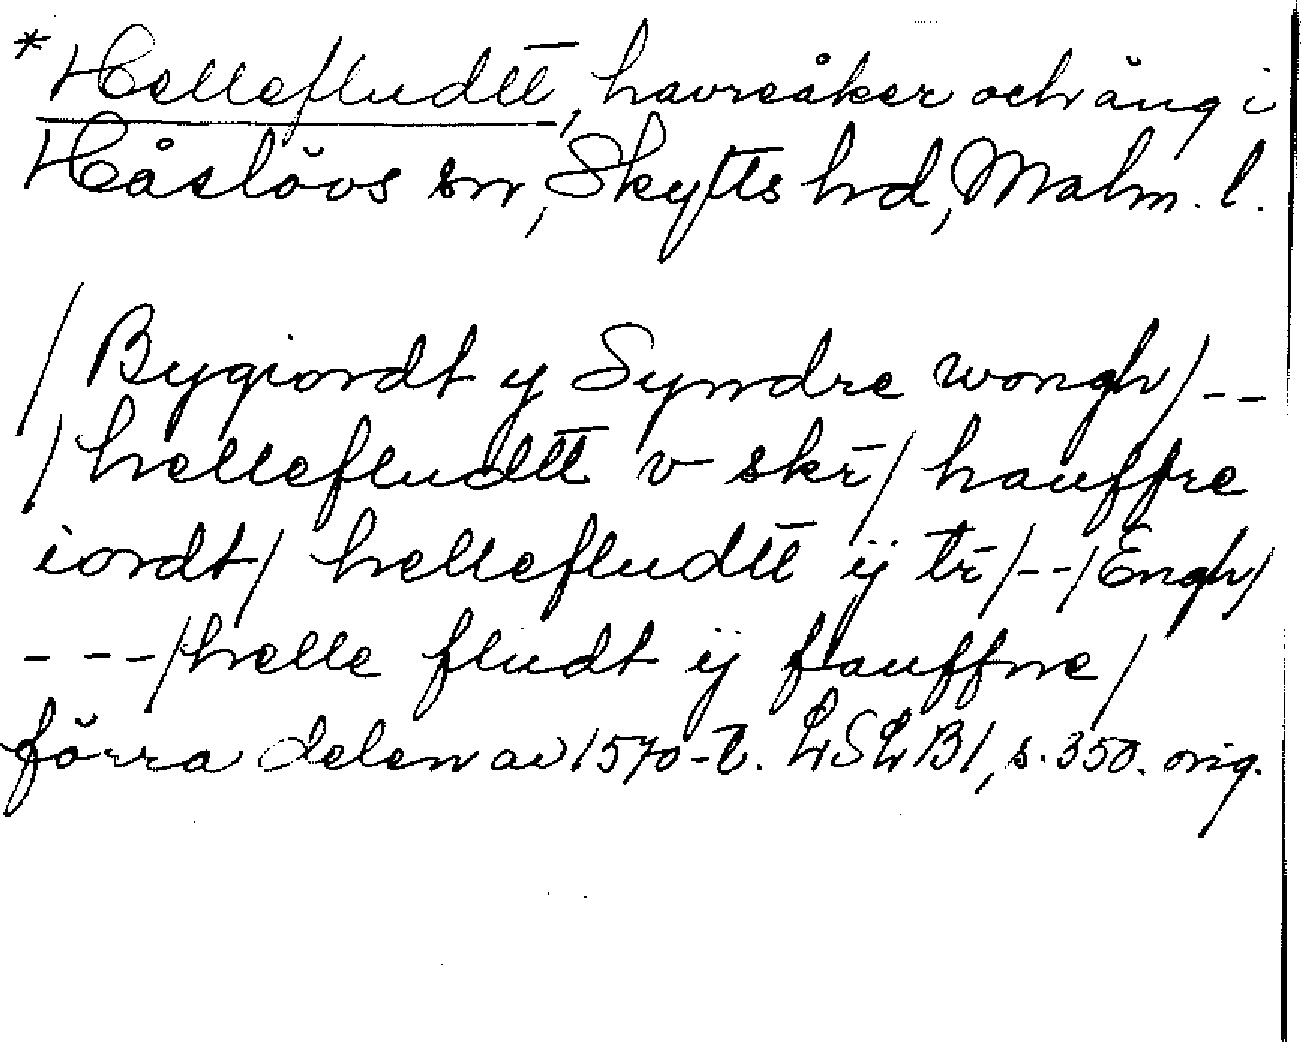 * Hellefludtt, havreåker och äng i
Håslövs sn, Skytts hd, Malm. l.
/Bygiordt y Syndre wongh/--
/hellefludtt v skr̄/ hauffre
iordt/ hellefludtt ÿ tr̄/--/Engh/
---/helle fludt ÿ flauffne/
förra delen av 1570-t. LSLB1, s. 350. orig.